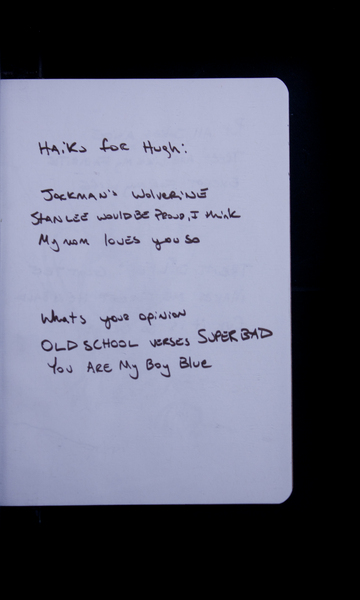 Haiku for Hugh:
Jackman's Wolverine
Stan Lee would be proud, I think
My mom loves you so
Whats your opinion
OLD SCHOOL verses SUPERBAD
You Are My Boy Blue